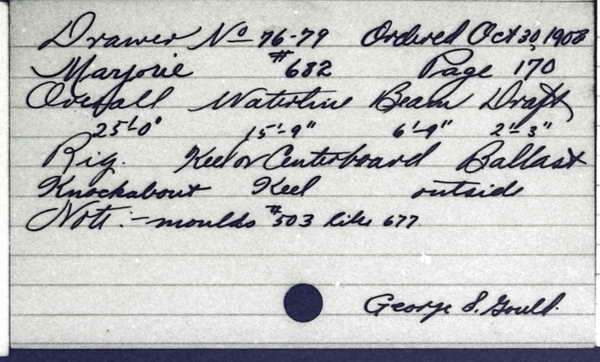 Drawer No 76-79 Ordered Oct 30, 1908
Marjorie #682 Page 170
Overall Waterline Beam Draft
25'-0" 15'-9" 6'-9" 2'-3"
Rig. Keel or Centerboard Ballast
Knockabout Keel outside
Note:- moulds #503 like 677
George S. Gould.